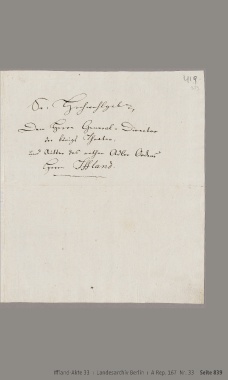 419
Sr. Hochwohlgeb.
Dem Herrn General-Director
der königl. Theater,
und Ritter des rothen Adler Ordens
Herrn Iffland.
Iffland-Akte 33 | Landesarchiv Berlin | A Rep. 167 Nr. 33 Seite 839